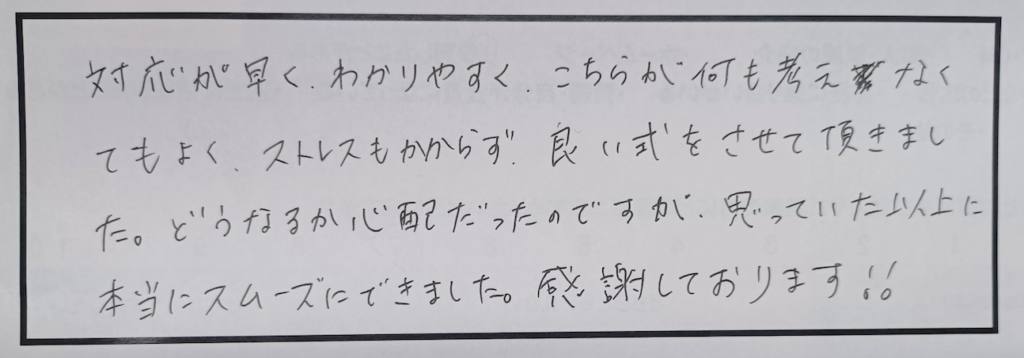 対応が早く、わかりやすく、こちらが何も考えなく
てもよく、ストレスもかからず、良い式をさせて頂きまし
た。どうなるか心配だったのですが、思っていた以上に
本当にスムーズにできました。感謝しております!!